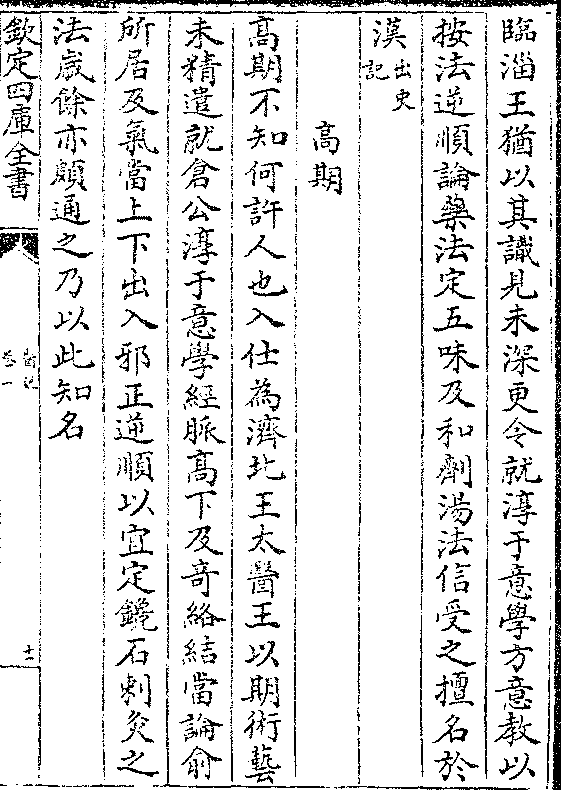 臨淄王猶以其識見未深更令就淳于意學方意教以
按法逆順論藥法定五味及和劑湯法信受之擅名於
漢出史
記
高期
高期不知何許人也入仕為濟北王太醫王以期術藝
未精遣就倉公淳于意學經脈高下及竒絡結當論俞
所居及氣當上下出入邪正逆順以宜定鑱石刺灸之
法歲餘亦頗通之乃以此知名
欽定四庫全書
醫説
卷一
十一